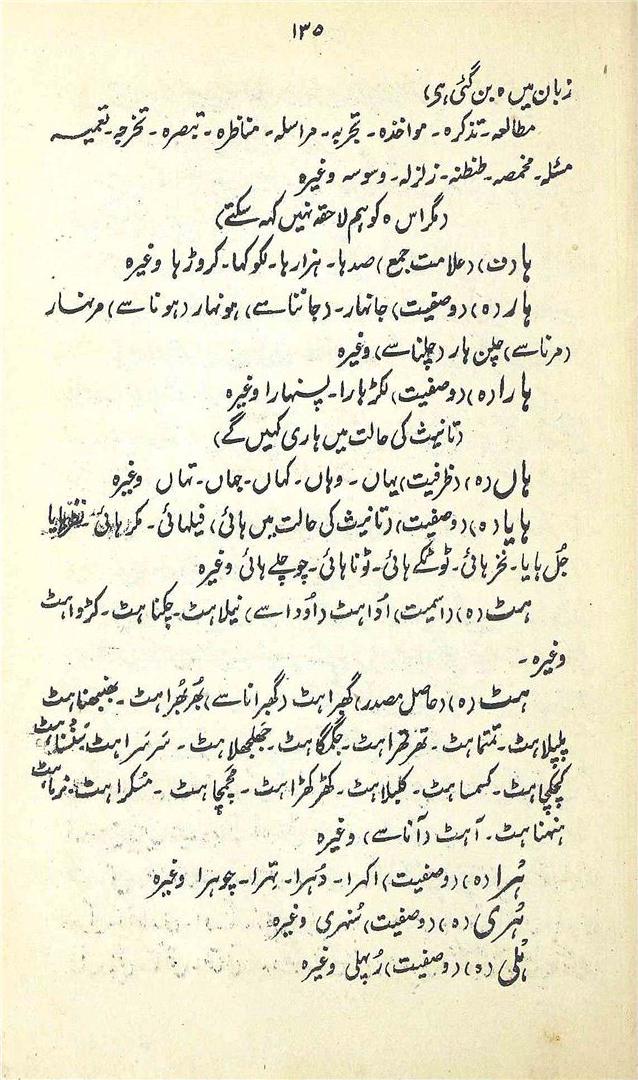 ۱۳۵
زبان میں ہ بن گئی ہی)
مطالعہ۔ تذکرہ۔ مواخذہ۔ تجربہ۔ مراسلہ۔ مناظرہ۔ تبصرہ۔ تخرجہ۔ تعمیہ
مثلہ۔ مخمصہ۔ طنطنہ۔ زلزلہ۔ وسوسہ وغیرہ
(مگر اس ہ کو ہم لاحقہ نہیں کہہ سکتے)
ہا (ف) (علامت جمع) صدہا۔ ہزارہا۔ لکوکہا۔ کروڑہا وغیرہ
ہار (ہ) (وصفیت) جانہار۔ (جاننا سے) ہونہار (ہونا سے) مرنہار
(مرنا سے) چلن ہار (چلنا سے) وغیرہ
ہارا (ہ) (وصفیت) لکڑہارا۔ پسنہارا وغیرہ
(تانیث کی حالت میں ہاری کہیں گے)
ہاں (ہ) (ظرفیت) یہاں۔ وہاں۔ کہاں۔ جہاں۔ تہاں وغیرہ
ہایا (ہ) (وصفیت) (تانیث کی حالت میں ہائی) فیلہائی۔ مکرہائی
جُل ہایا۔ نخرہائی۔ ٹوٹکے ہائی۔ ٹوناہائی۔ چوچلے ہائی وغیرہ
ہٹ (ہ) (اسمیت) اُداہٹ (اُودا سے) نیلاہٹ۔ چکناہٹ۔ کڑواہٹ
وغیرہ۔
ہٹ (ہ) (حاصل مصدر) گھبراہٹ (گھبرانا سے) بُھربُھراہٹ۔ بھنبھناہٹ
پلپلاہٹ۔ تمتماہٹ۔ تھرتھراہٹ۔ جگمگاہٹ۔ جھلجھلاہٹ۔ سَرسَراہٹ۔ سَنسَناہٹ
کچکچاہٹ۔ کسمساہٹ۔ کلبلاہٹ۔ کھڑکھڑاہٹ۔ چمچماہٹ۔ مُسکراہٹ۔ نرماہٹ
ہنہناہٹ۔ آہٹ (آنا سے) وغیرہ
ہُرا (ہ) (وصفیت) اکہرا۔ دُہرا۔ تہرا۔ چوہرا وغیرہ
ہُری (ہ) (وصفیت) سُنہری وغیرہ
ہُلی (ہ) (وصفیت) رُپہلی وغیرہ